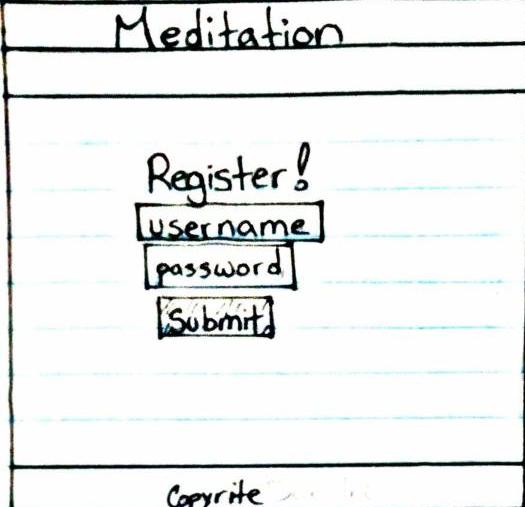 Meditation
Register!
username
password
Submit
Copyrite